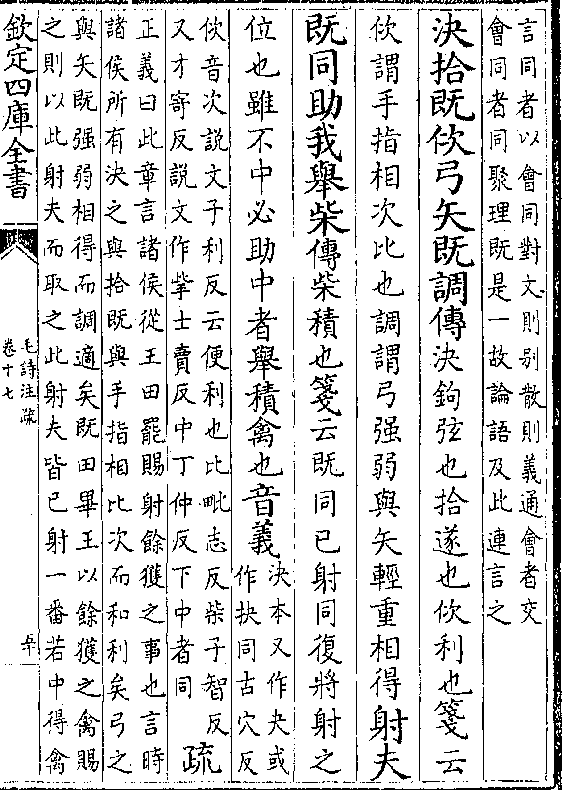 言同者以會同對文則别散則義通會者交
會同者同聚理既是一故論語及此連言之
決拾既佽弓矢既調傳決鉤弦也拾遂也佽利也箋云
佽謂手指相次比也調謂弓强弱與矢輕重相得射夫
既同助我舉柴傳柴積也箋云既同已射同復將射之
位也雖不中必助中者舉積禽也音義
決本又作夬或
作抉同古穴反
佽音次說文子利反云便利也比毗志反柴子智反
又才寄反說文作㧘士賣反中丁仲反下中者同
疏
正義曰此章言諸侯從王田罷賜射餘獲之事也言時
諸侯所有決之與拾既與手指相比次而和利矣弓之
與矢既强弱相得而調適矣既田畢王以餘獲之禽賜
之則以此射夫而取之此射夫皆已射一番若中得禽
欽定四庫全書
毛詩注疏
卷十七